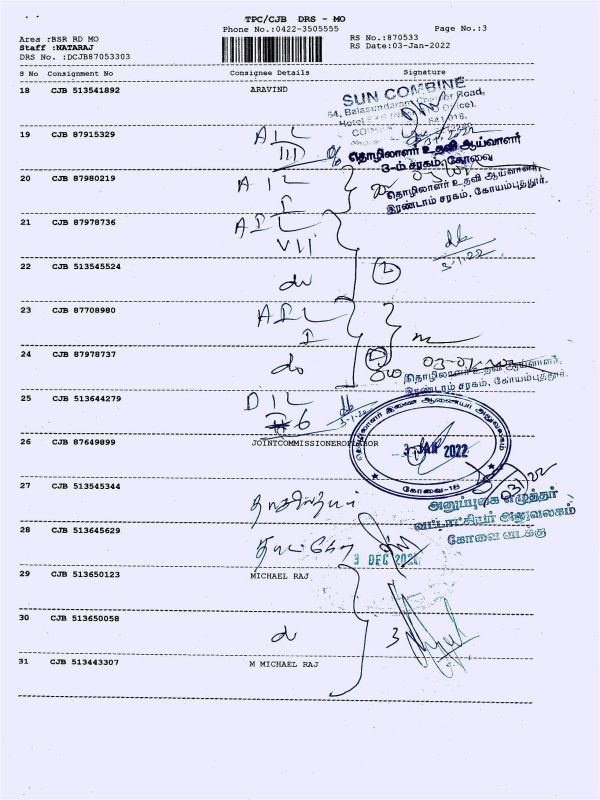 TPC/CJB DRS - MO
Phone No.:0422-3505555
Page No.:3
Area :BSR RD MO
Staff :NATARAJ
DRS No. :DCJB87053303
RS No.:870533
RS Date:03-Jan-2022
S No Consignment No Consignee Details Signature
18 CJB 513541892 ARAVIND
SUN COMBINE
64, Balasundaram Road,
19 CJB 87915329 AIL
III
தொழிலாளர் உதவி ஆய்வாளர்
3-ம் சரகம், கோவை
20 CJB 87980219 AIL
I
தொழிலாளர் உதவி ஆய்வாளர்,
இரண்டாம் சரகம், கோயம்புத்தூர்.
21 CJB 87978736 AIL
VII
3-1-22
22 CJB 513545524 do
2
23 CJB 87708980 AIL
I
24 CJB 87978737 do
தொழிலாளர் உதவி ஆய்வாளர்,
இரண்டாம் சரகம், கோயம்புத்தூர்.
25 CJB 513644279 DIL
6
26 CJB 87649899 JOINTCOMMISSIONEROFLABOR
தொழிலாளர் இணை ஆணையர் அலுவலகம்
3 JAN 2022
கோவை-18
27 CJB 513545344
அனுப்புகை எழுத்தர்
வட்டாட்சியர் அலுவலகம்
கோவை வடக்கு
28 CJB 513645629
3 DEC
29 CJB 513650123 MICHAEL RAJ
30 CJB 513650058
3
31 CJB 513443307 M MICHAEL RAJ